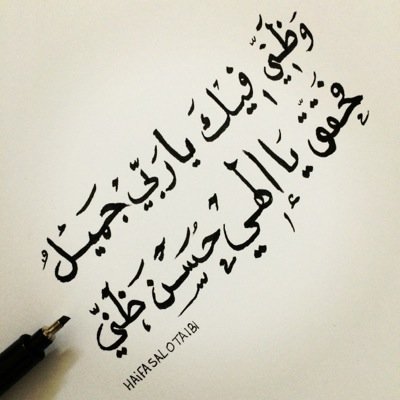 وَظَنِّي فِيْكَ يا رَبِّي جَمِيْلُ
فَحَقِّقْ يَا إِلَهِي حُسْنَ ظَنِّي
HAIFASALOTAIBI